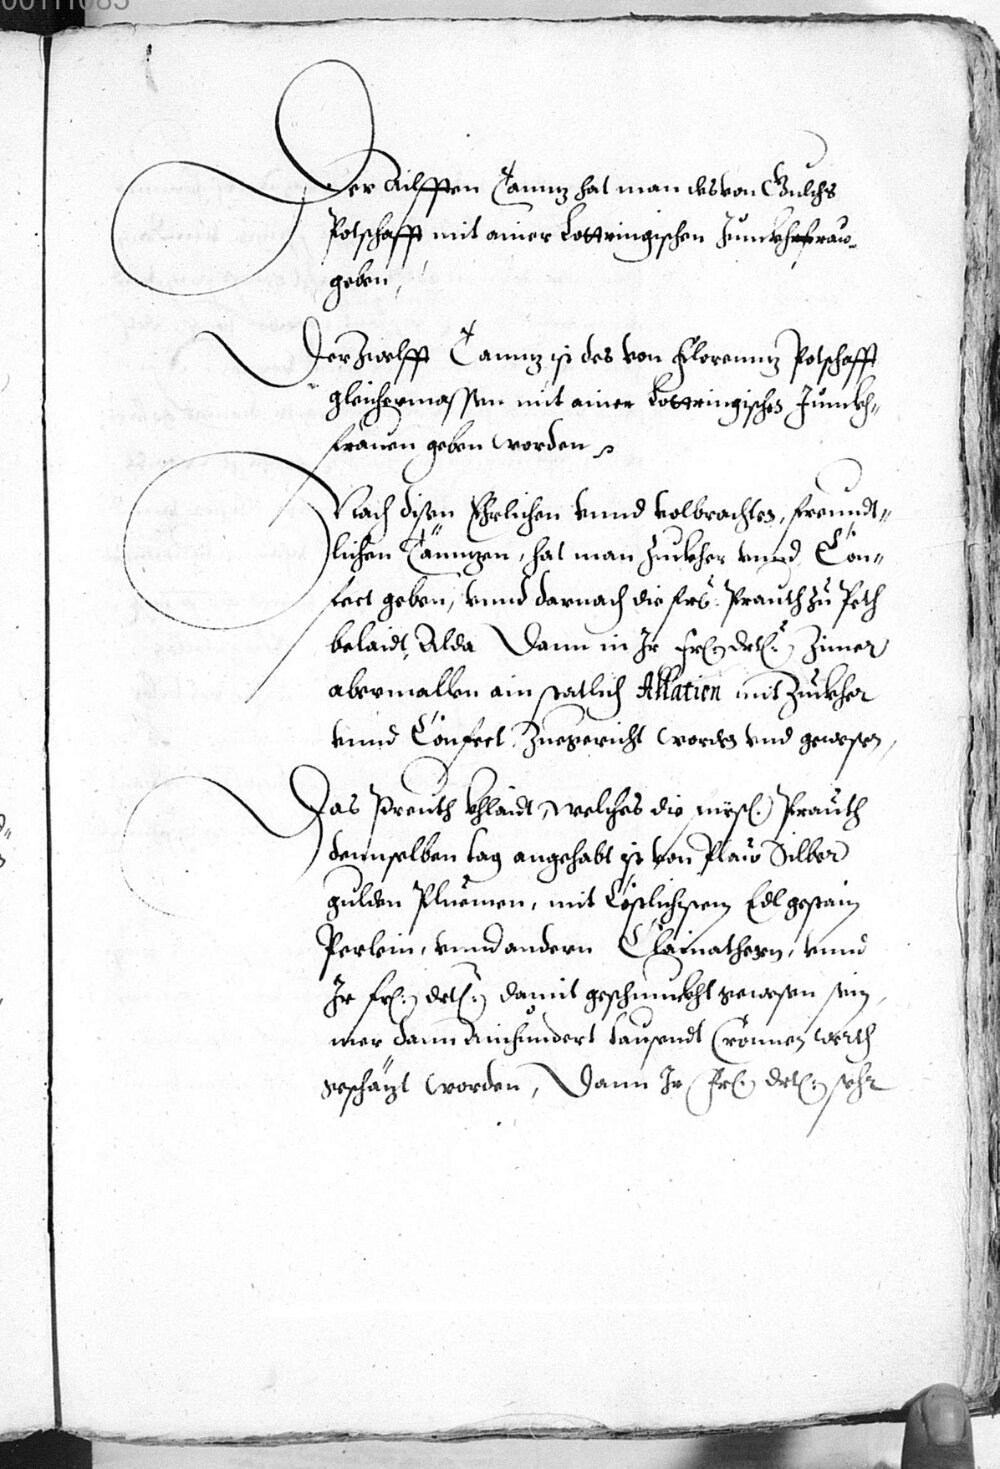 00111085
Der Ailfften Tanntz hat man des von Gülchs
Potschafft mit ainer Lottringischen Junckhfraw
geben,
Der Zwelfft Tanntz ist des von Florenntz Potschafft
gleichermassen mit ainer Lottringischen Junckh„
frauen geben worden
Nach disen Ehrlichen vnnd volbrachten, freundt„
lichen Tänntzen, hat man Zuckher vnnd Con„
fect geben, vnnd darnach die frl: Prauth zu Peth
belaidt, Alda Dann in Ir frl: drl: Zimer
abermallen ain statlich Collation mit Zuckher
vnnd Confect, Zuegericht worden vnd gewesen,
Das Preuth Khlaidt, welches die Prauth
dennselben tag angehabt ist von Plaw Silber
gulden Pluemen, mit Cöstlichstem Edlgestain
Perlein, vnnd andern Clainathern, vnnd
Ir frl: drl: damit geschmuckht gewesen sein,
mer dann Ainhundert tausendt Cronnen werth
geschätzt worden, Dann Ir frl: drl: sehr